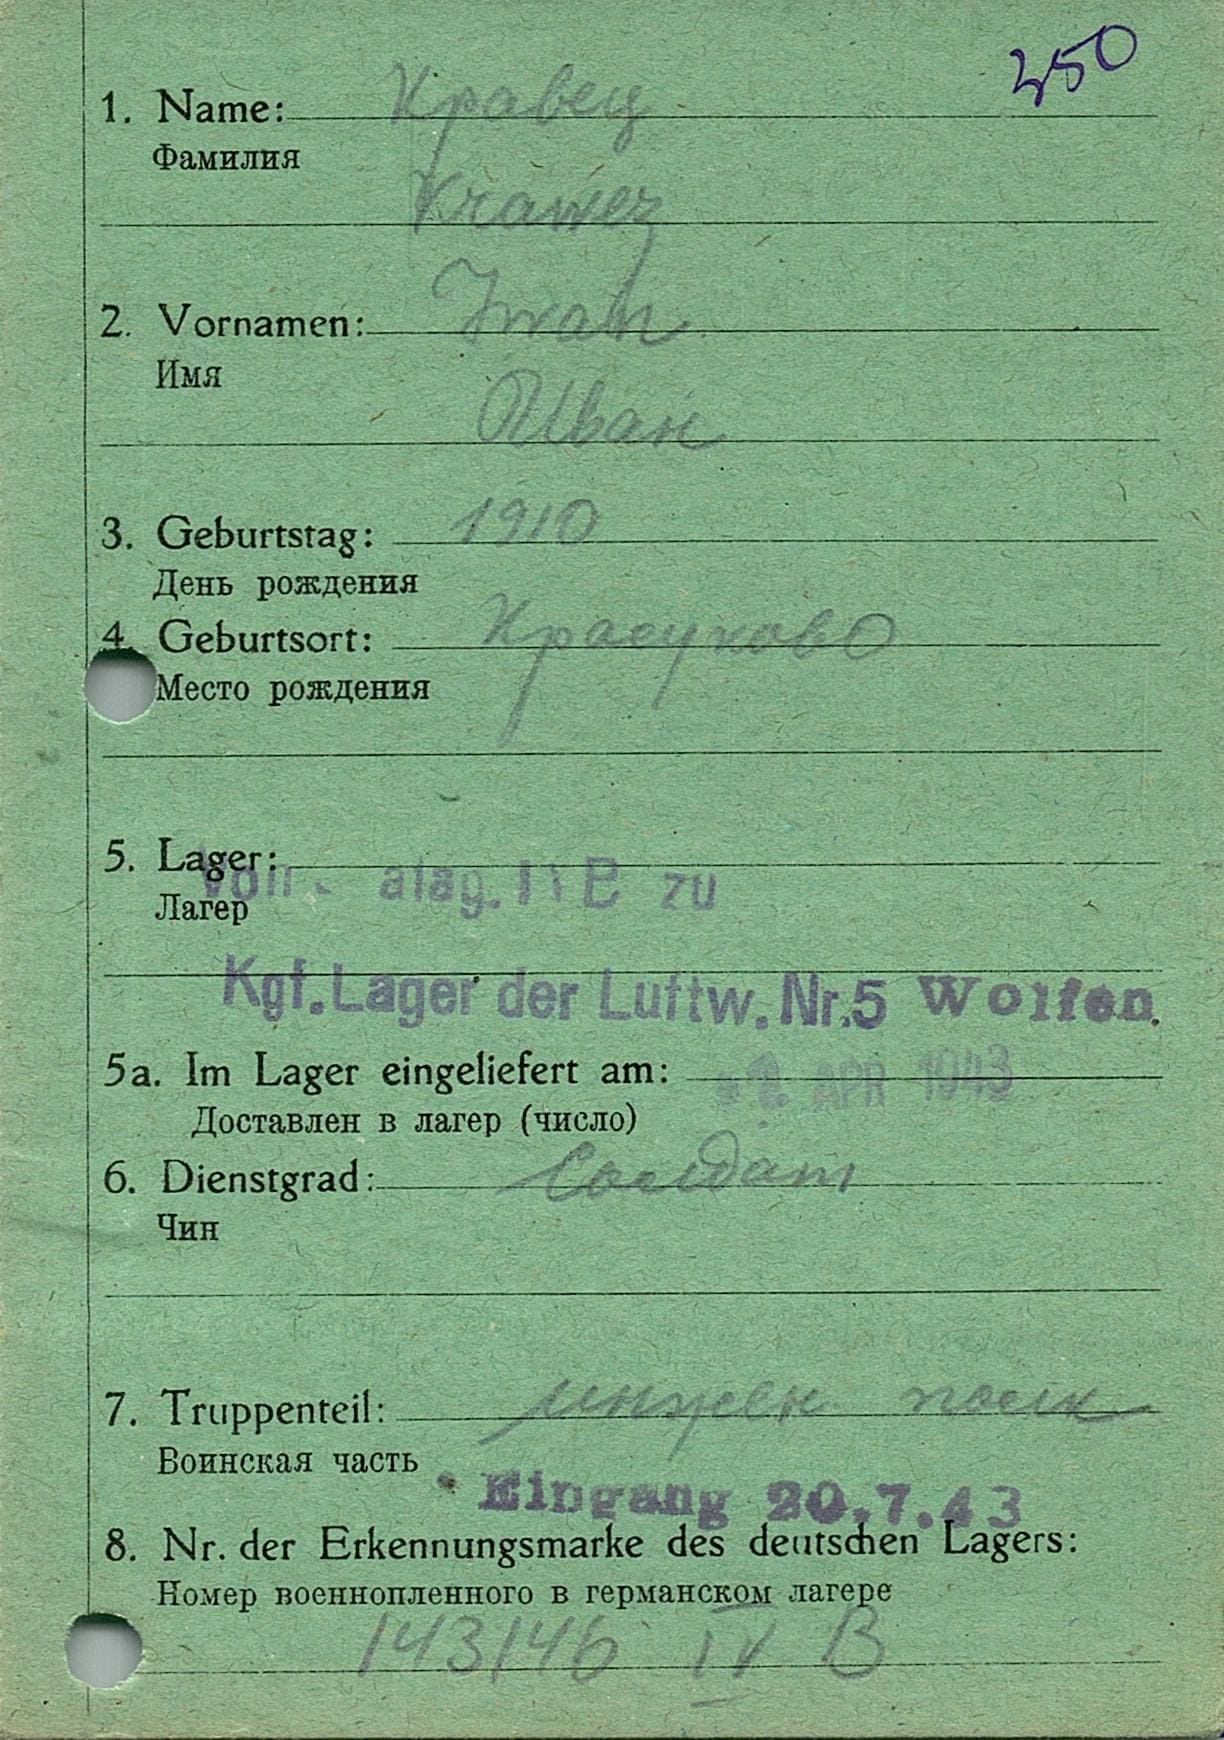 350
1. Name: Кравец
Фамилия
Krawez
2. Vornamen: Iwan
Имя
Иван
3. Geburtstag: 1910
День рождения
4. Geburtsort: Красуково
Место рождения
5. Lager:
Von alag. B zu
Лагер
Kgf. Lager der Luftw. Nr. 5 Wolfen.
5a. Im Lager eingeliefert am: APR 1943
Доставлен в лагер (число)
6. Dienstgrad: Солдат
Чин
7. Truppenteil: полк
Воинская часть
Eingang 20.7.43
8. Nr. der Erkennungsmarke des deutschen Lagers:
Номер военнопленного в германском лагере
143146 IV B